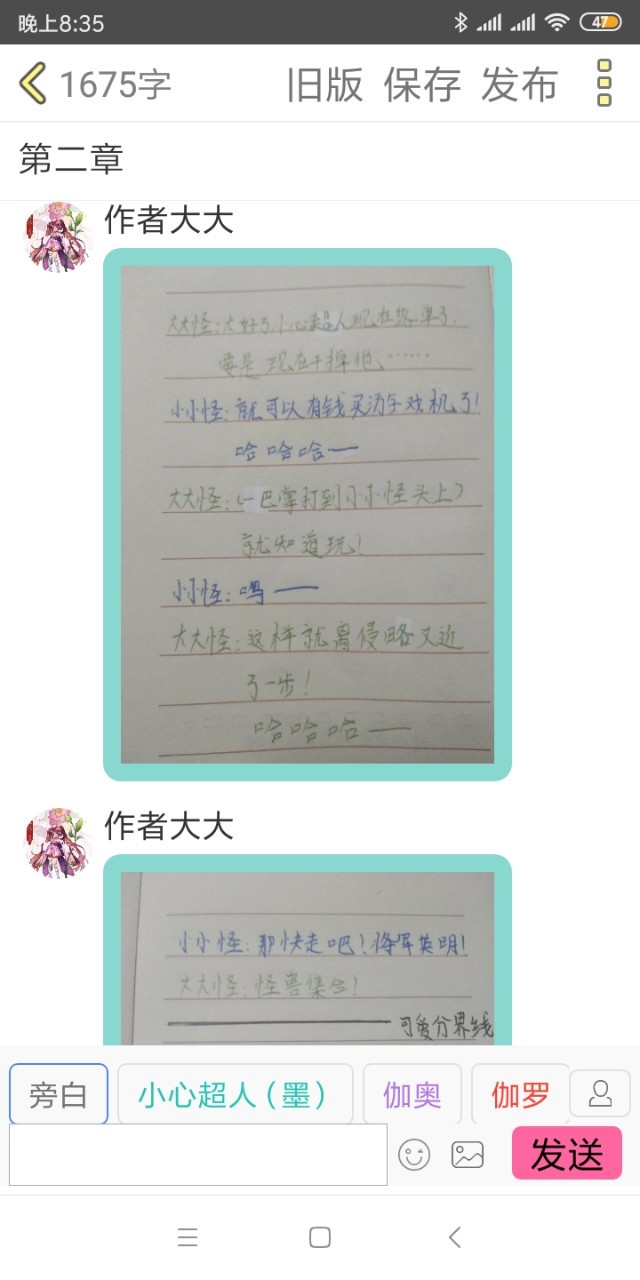 晚上8:35
47
1675字
旧版 保存 发布
第二章
作者大大
大大怪:太好了!小心超人现在落单了.
要是现在干掉他……
小小怪:就可以有钱买汤手戏机了!
哈哈哈——
大大怪:(一巴掌打到小小怪头上)
就知道玩!
小小怪:呜——
大大怪:这样就离侵略又近
了一步!
哈哈哈——
作者大大
小小怪:那快走吧!将军英明!
大大怪:怪兽集合!
——可爱分界线
旁白
小心超人(墨)
伽奥
伽罗
发送